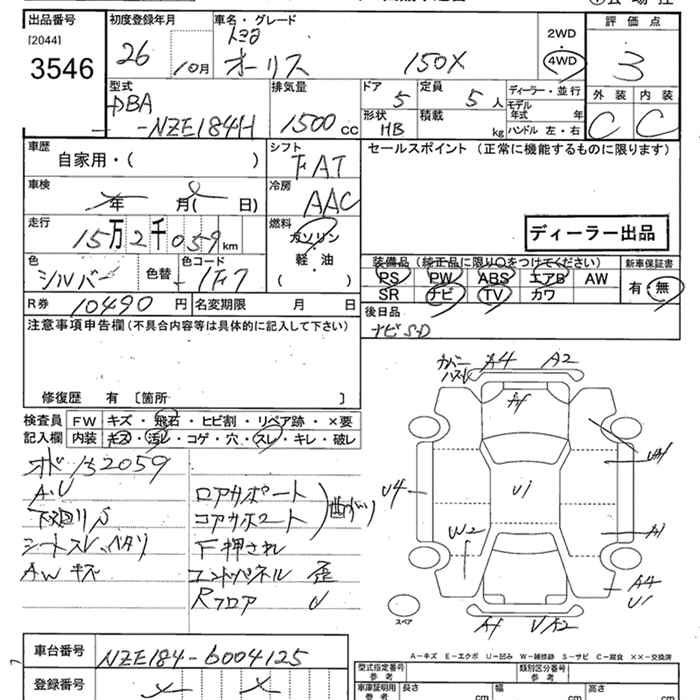 出品番号 初度登録年月 車名・グレード 2WD 評価点
[2044] トヨタ
3546 26 10月 オーリス 150X 4WD 3
型式 排気量 ドア 定員 ディーラー・並行 外装 内装
DBA 5 5人 モデル年式 年 C C
-NZE184H 1500cc 形状 HB 積載 kg ハンドル 左・右
車歴 シフト セールスポイント (正常に機能するものに限ります)
自家用・( ) FAT
車検 冷房
年 月( 日) AAC
走行 燃料
15万2千059km ガソリン ディーラー出品
色 色コード 軽・油 装備品(純正品に限り○をつけてください) 新車保証書
シルバー 色替 1F7 ( ) PS PW ABS エアB AW 有・無
R券 10490円 名変期限 月 日 SR ナビ TV カワ
注意事項申告欄(不具合内容等は具体的に記入して下さい) 後日品
ナビSD
修復歴 有 [箇所 ]
カバー A4 A2
検査員 FW キズ・飛石・ヒビ割・リペア跡・×要
記入欄 内装 キズ・汚レ・コゲ・穴・スレ・キレ・破レ
152059
A.U ロアサポート
コアサポート
シートスレ、 下押され
AWキズ エンドパネル 歪
Rフロア U
U4 U1
W2 A1
A4
U1
スペア
A1
A-キズ E-エクボ U-凹み W-補修跡 S-サビ C-腐食 XX-交換済
車台番号 NZE184-6004125 型式指定番号 参考 類別区分番号 参考
登録番号 車庫証明用 参考 長さ cm 幅 cm 高さ cm